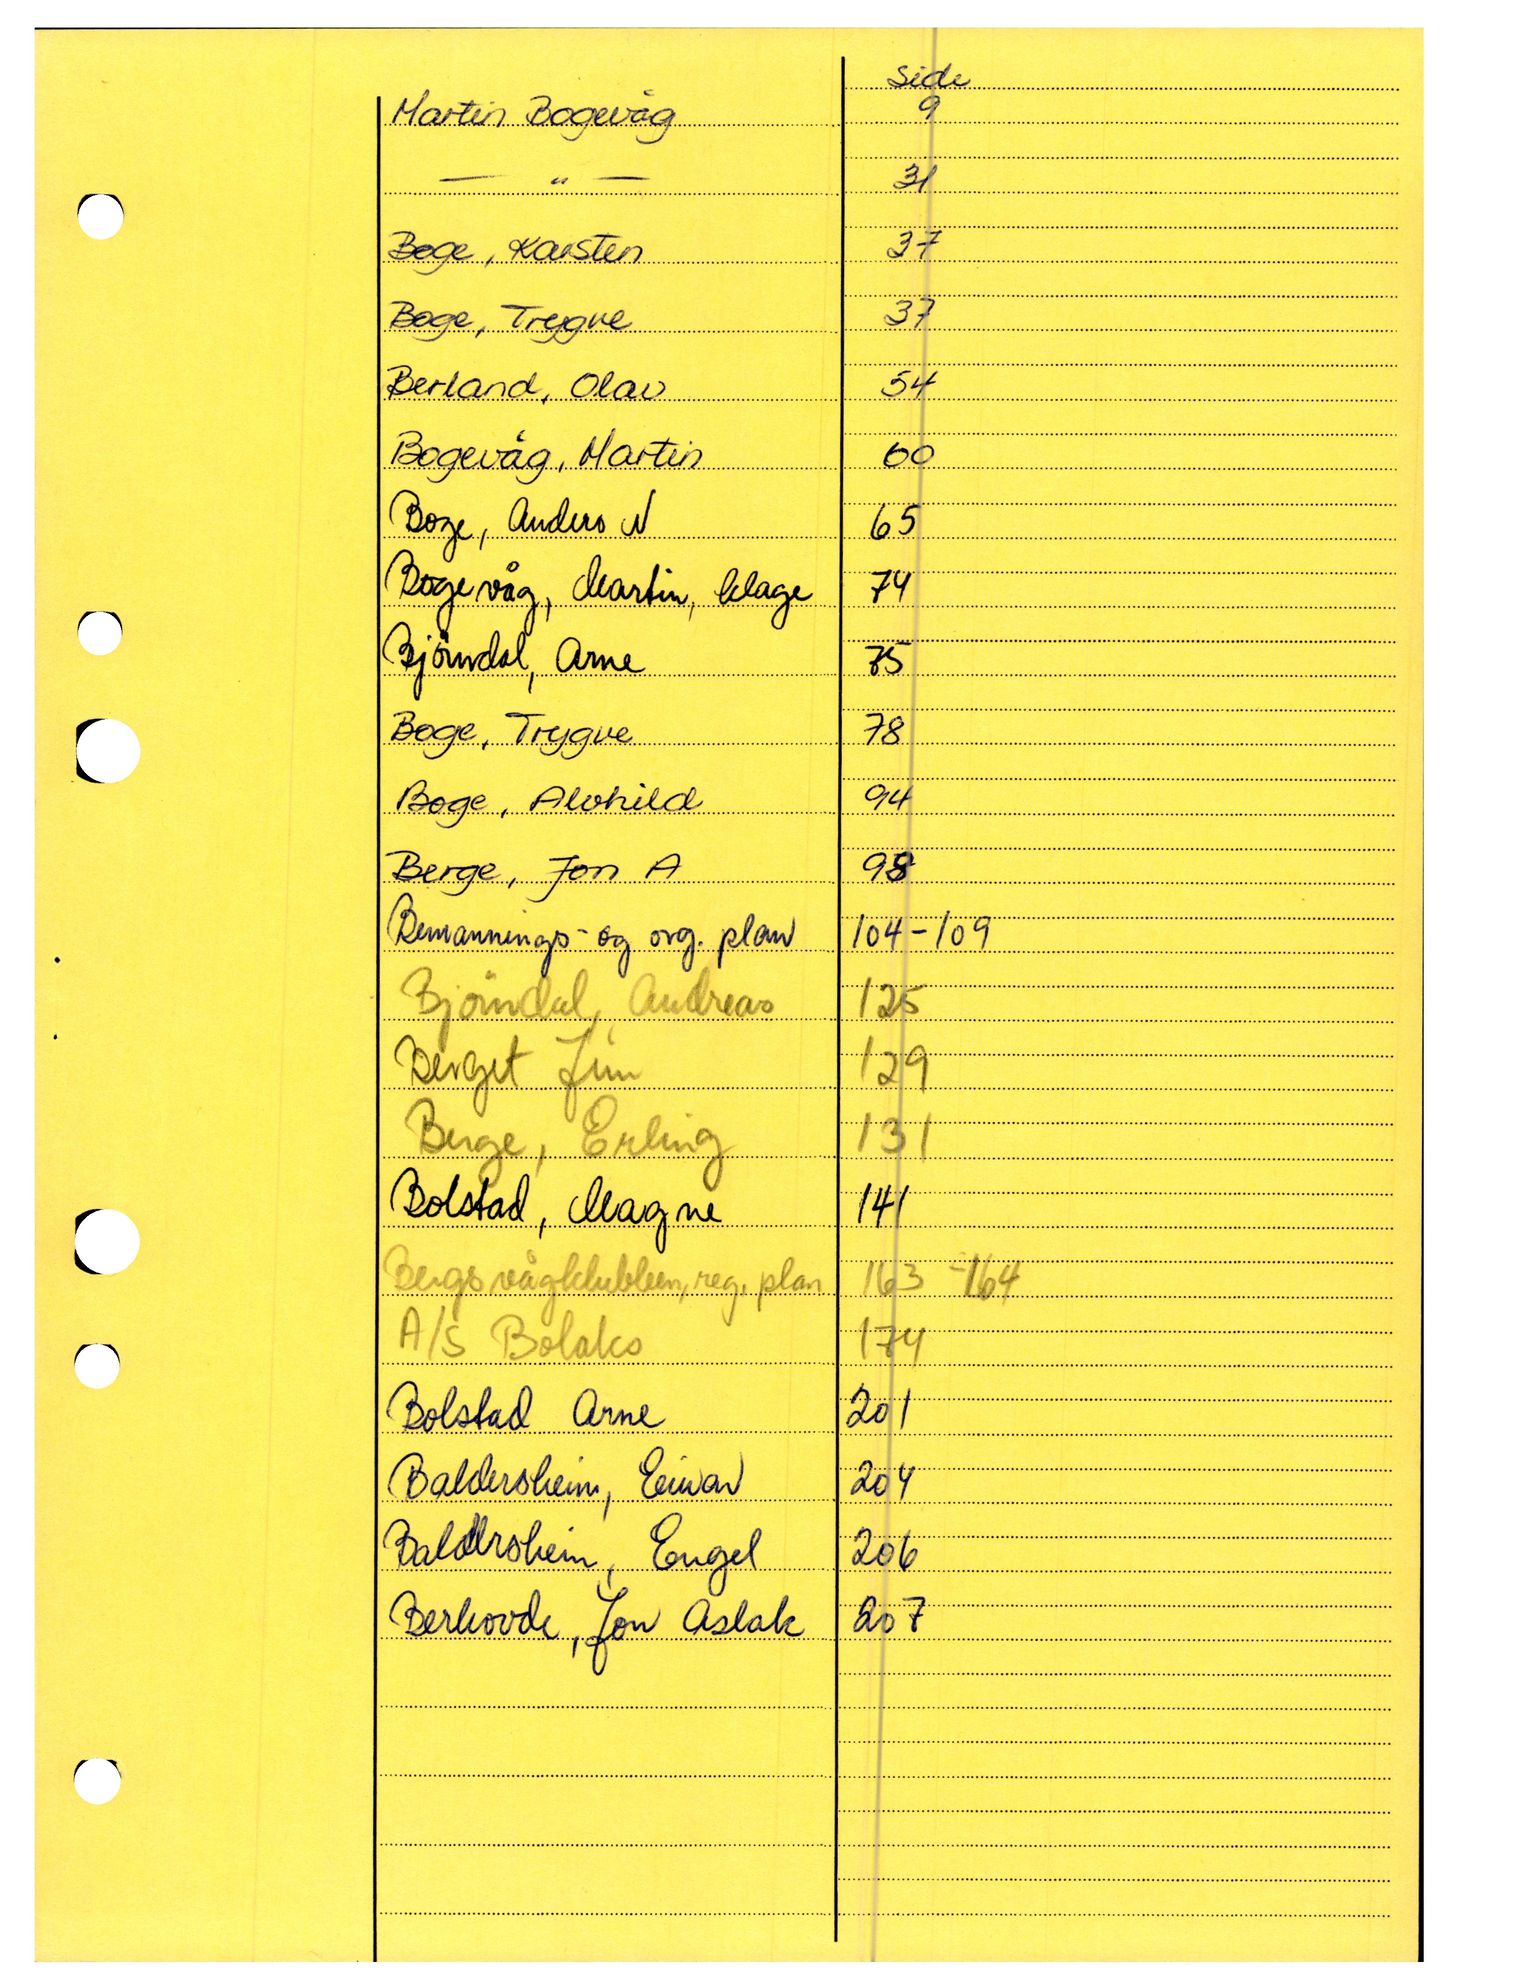 Side
Martin Bogevåg 9
— " — 31
Boge, Karsten 37
Boge, Trygve 37
Berland, Olav 54
Bogevåg, Martin 60
Boge, Anders N 65
Bogevåg, Martin, klage 74
Björndal, Arne 75
Boge, Trygve 78
Boge, Alvhild 94
Berge, Jon A 98
Bemannings- og org. plan 104-109
Björndal, Andreas 125
Berget Jim 129
Berge, Erling 131
Bolstad, Magne 141
Bergsvågklubben, reg. plan 163-164
A/S Bolaks 174
Bolstad Arne 201
Baldersheim, Einar 204
Baldersheim, Engel 206
Berhovde, Jon Aslak 207